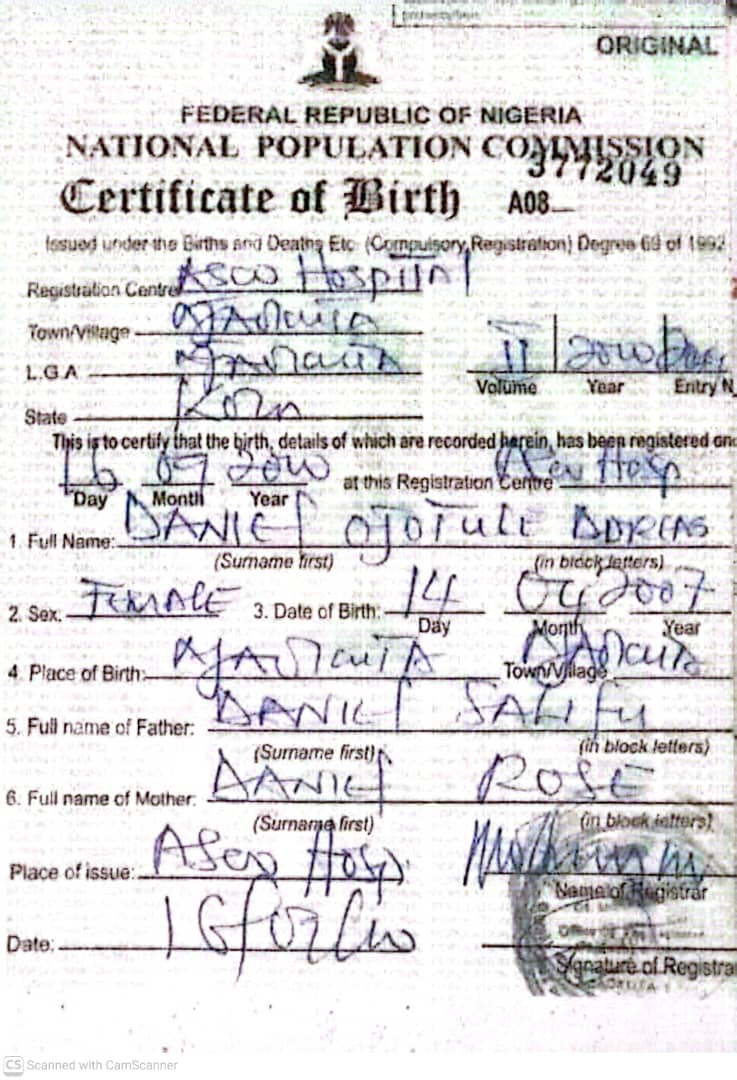 ORIGINAL
FEDERAL REPUBLIC OF NIGERIA
NATIONAL POPULATION COMMISSION
3772049
Certificate of Birth A08
Issued under the Births and Deaths Etc (Compulsory Registration) Degree 69 of 1992
Registration Centre ASCO HOSPITAL
Town/Village AJAOKUTA
L.G.A AJAOKUTA
II 2010
Volume Year Entry N
State KOGI
This is to certify that the birth, details of which are recorded herein, has been registered on
16 2010 at this Registration Centre Asco Hosp
Day Month Year
1. Full Name: DANIEL OJOTULE DORCAS
(Surname first) (in block letters)
2. Sex: FEMALE 3. Date of Birth: 14 04 2007
Day Month Year
4. Place of Birth: AJAOKUTA Town/Village AJAOKUTA
5. Full name of Father: DANIEL SALIFU
(Surname first) (in block letters)
6. Full name of Mother: DANIEL ROSE
(Surname first) (in block letters)
Place of issue: ASCO Hosp
Name of Registrar
Date: 16/
Signature of Registrar
CS Scanned with CamScanner